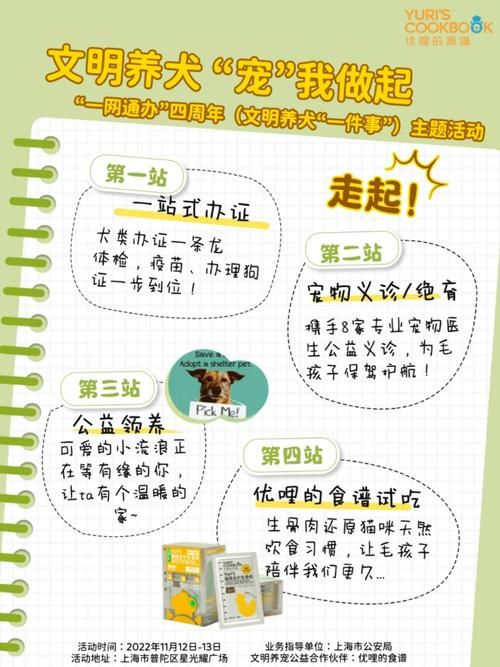 YURI'S
COOKBOOK
优哩的食谱
文明养犬“宠”我做起
“一网通办”四周年（文明养犬“一件事”）主题活动
走起！
第一站
一站式办证
犬类办证一条龙
体检，疫苗、办理狗
证一步到位！
第二站
宠物义诊/绝育
携手8家专业宠物医
生公益义诊，为毛
孩子保驾护航！
Save a
Adopt a shelter pet
Pick Me!
第三站
公益领养
可爱的小流浪正
在等有缘的你，
让ta有个温暖的
家~
第四站
优哩的食谱试吃
生骨肉还原猫咪天然
饮食习惯，让毛孩子
陪伴我们更久...
Yuri's
Yuri's
活动时间：2022年11月12日-13日
活动地址：上海市普陀区星光耀广场
业务指导单位：上海市公安局
文明养宠公益合作伙伴：优哩的食谱